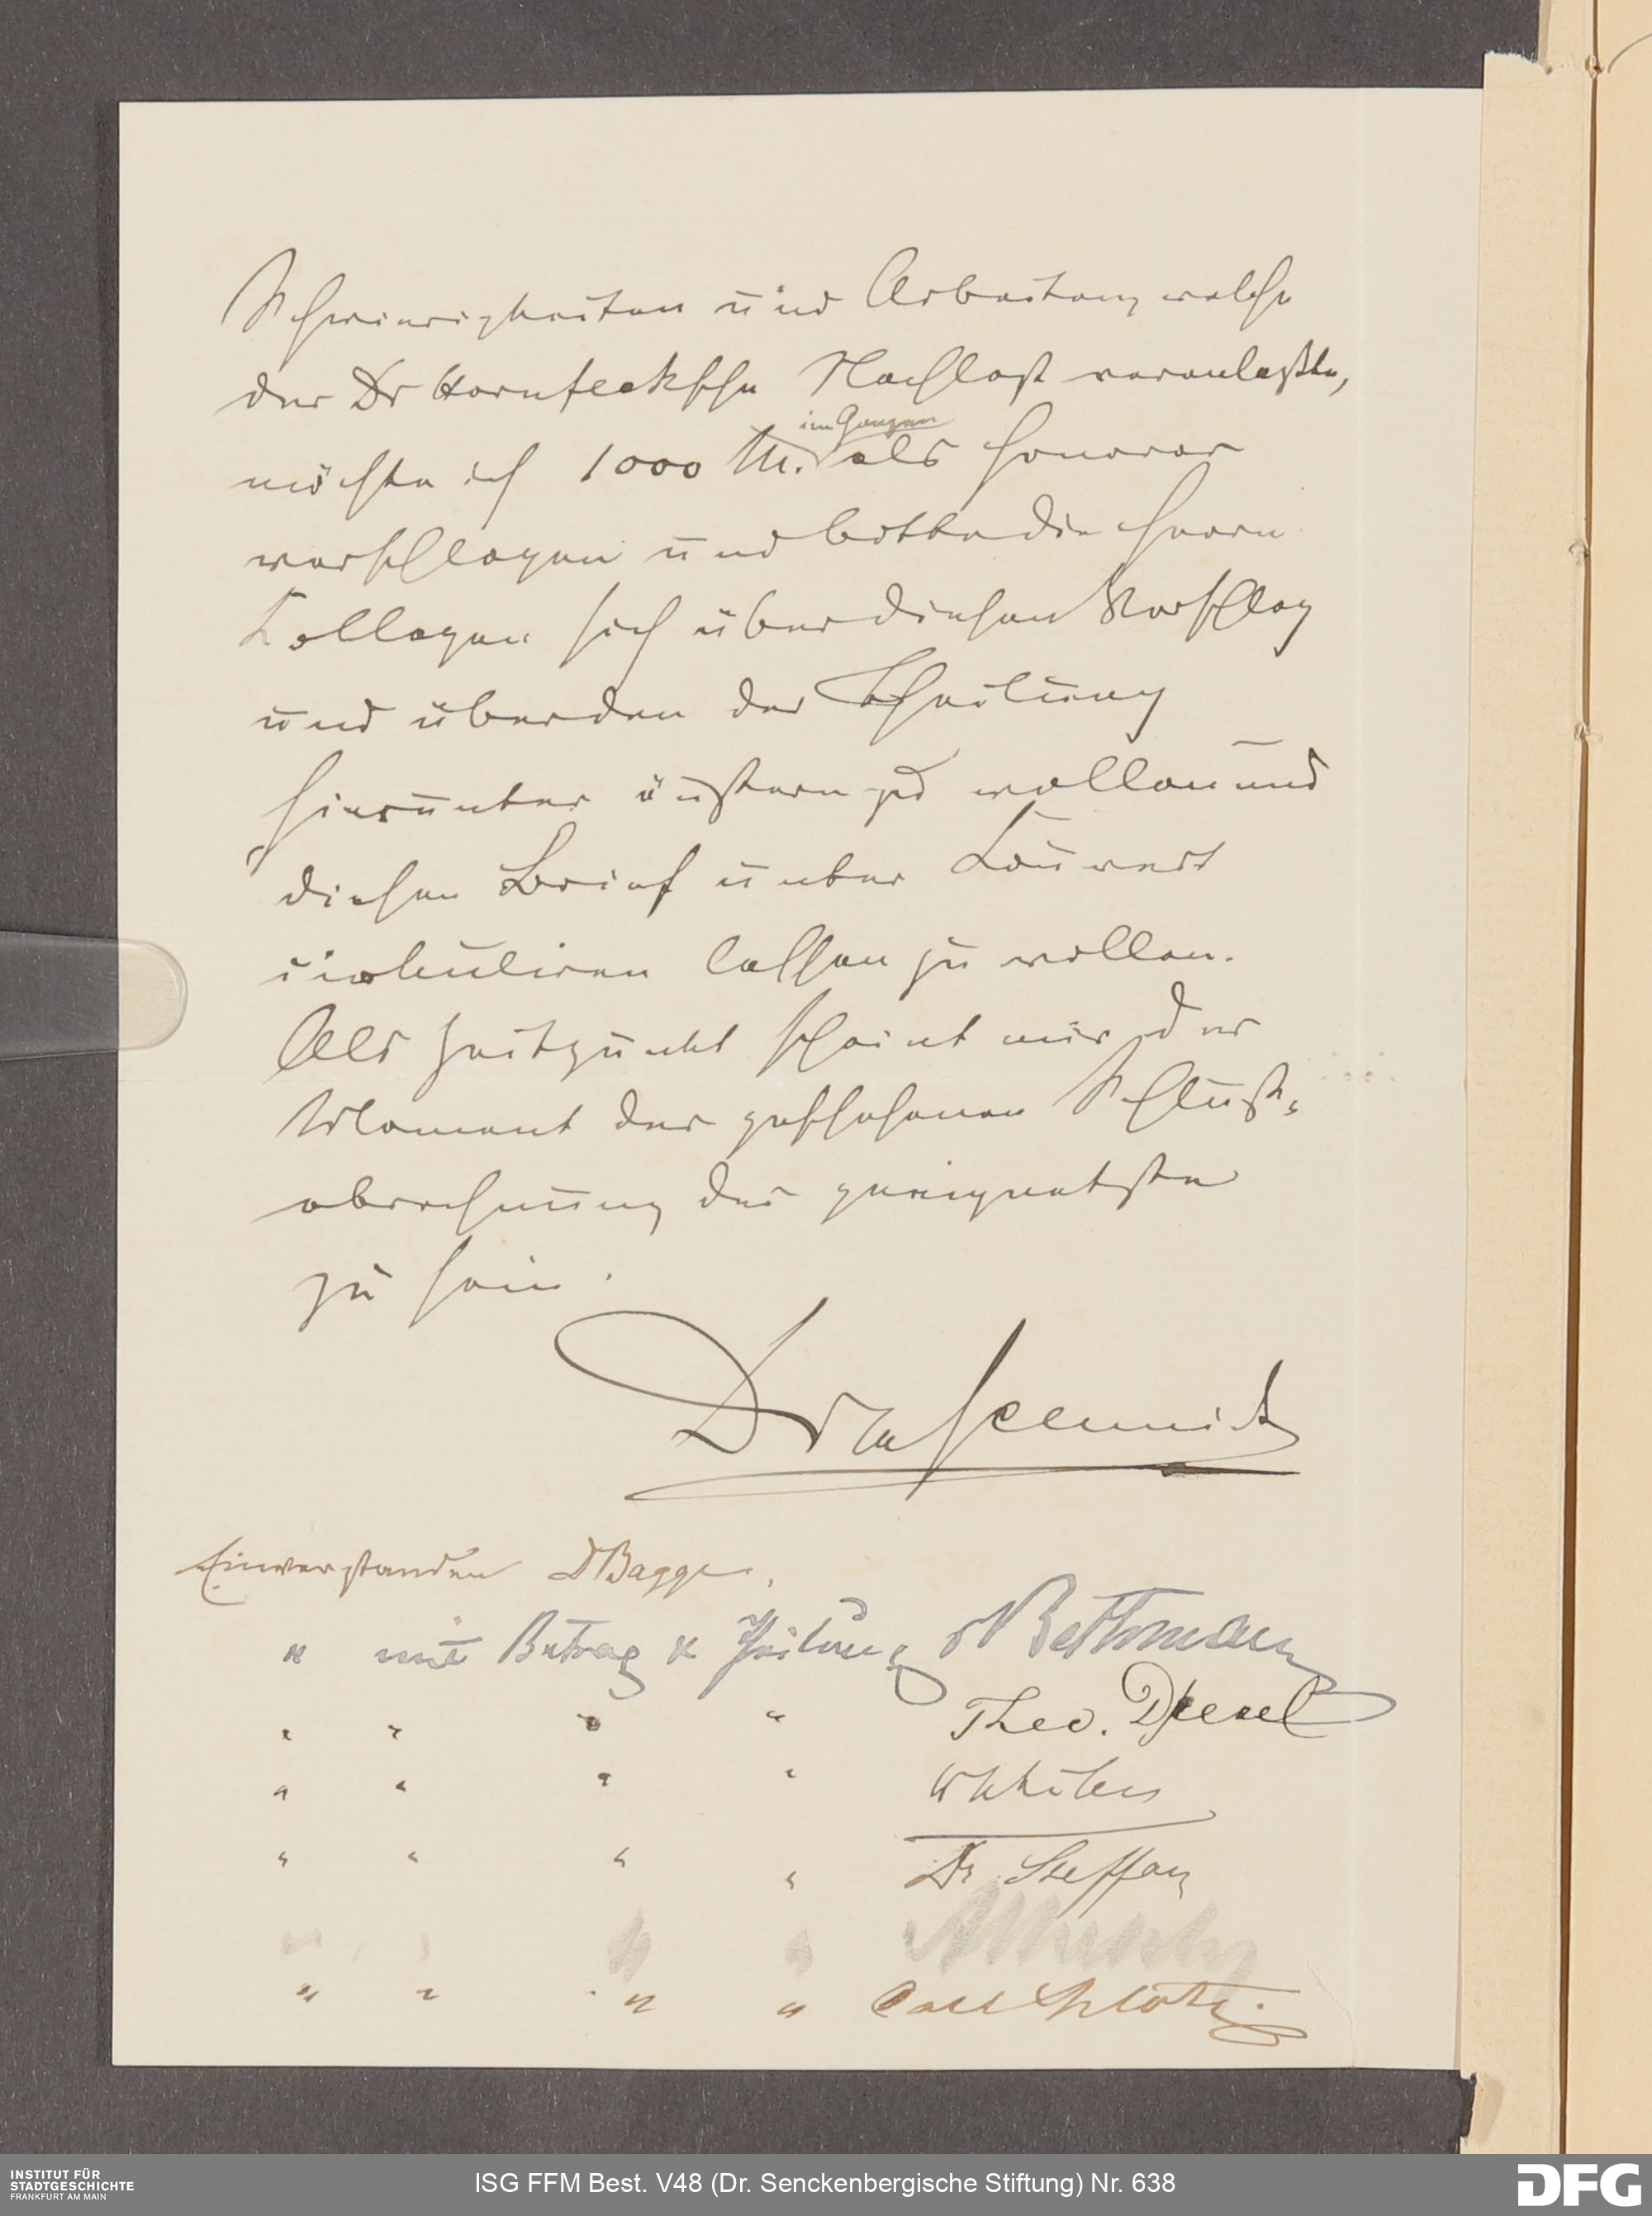 Schwierigkeiten und Arbeiten, welche
der Dr Hornfecksche Nachlaß veranlaßte,
möchte ich 1000 M. im Ganzen als Honorar
vorschlagen und bitte die Herrn
Collegen sich über diesen Vorschlag
und über den der Theilung
hierunter äußern zu wollen und
diesen Brief unter Couvert
circuliren lassen zu wollen.
Als Zeitpunkt scheint mir der
Moment der geschehenen Schluß-
abrechnung der geeignetste
zu sein.
Dr Schmidt
Einverstanden Dr Bagge,
" mit Betrag & Theilung Dr Bethmann
" " " " Theo. Drexel
" " " "
" " " " Dr. Steffan
" " " "
" " " " Carl
INSTITUT FÜR
STADTGESCHICHTE
FRANKFURT AM MAIN
ISG FFM Best. V48 (Dr. Senckenbergische Stiftung) Nr. 638
DFG